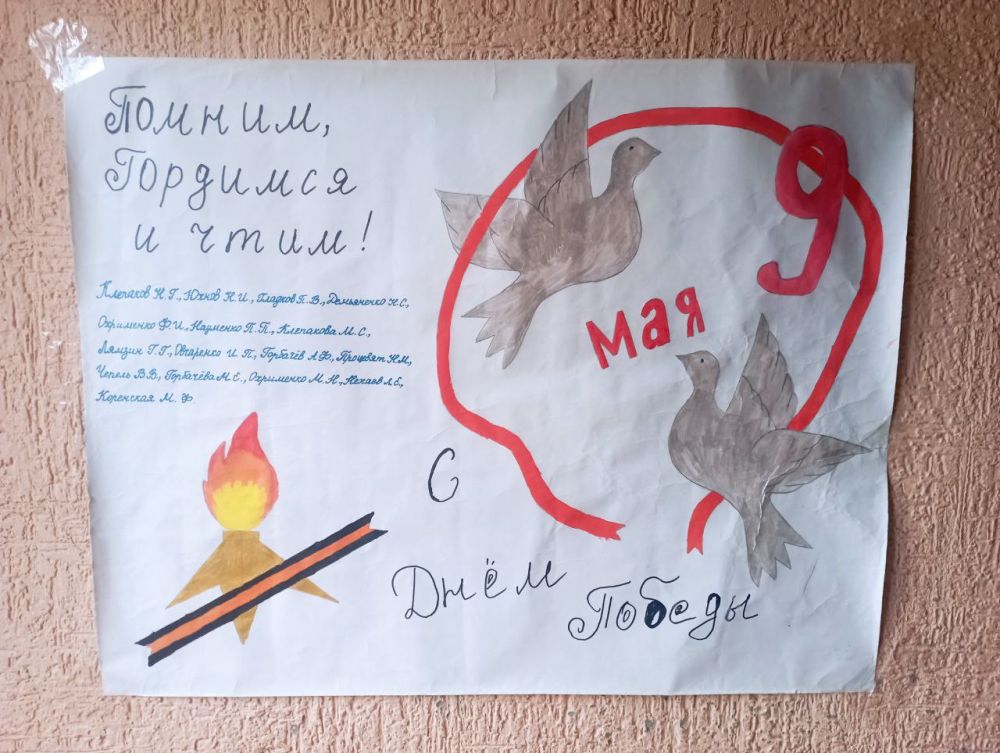 Помним,
Гордимся
и чтим!
Клепаков Н.Г., Юхнов Н.И., Гладков П.В., Демьяненко Н.С.,
Охрименко Ф.И., Науменко П.П., Клепакова М.С.,
Лямзин Г.Г., Овчаренко И.П., Горбачёв А.Ф., Процвят Н.М.,
Чепель В.В., Горбачёва М.Е., Охрименко М.Н., Нехаев А.Е.,
Коренская М.Ф
9
мая
С
Днём
Победы